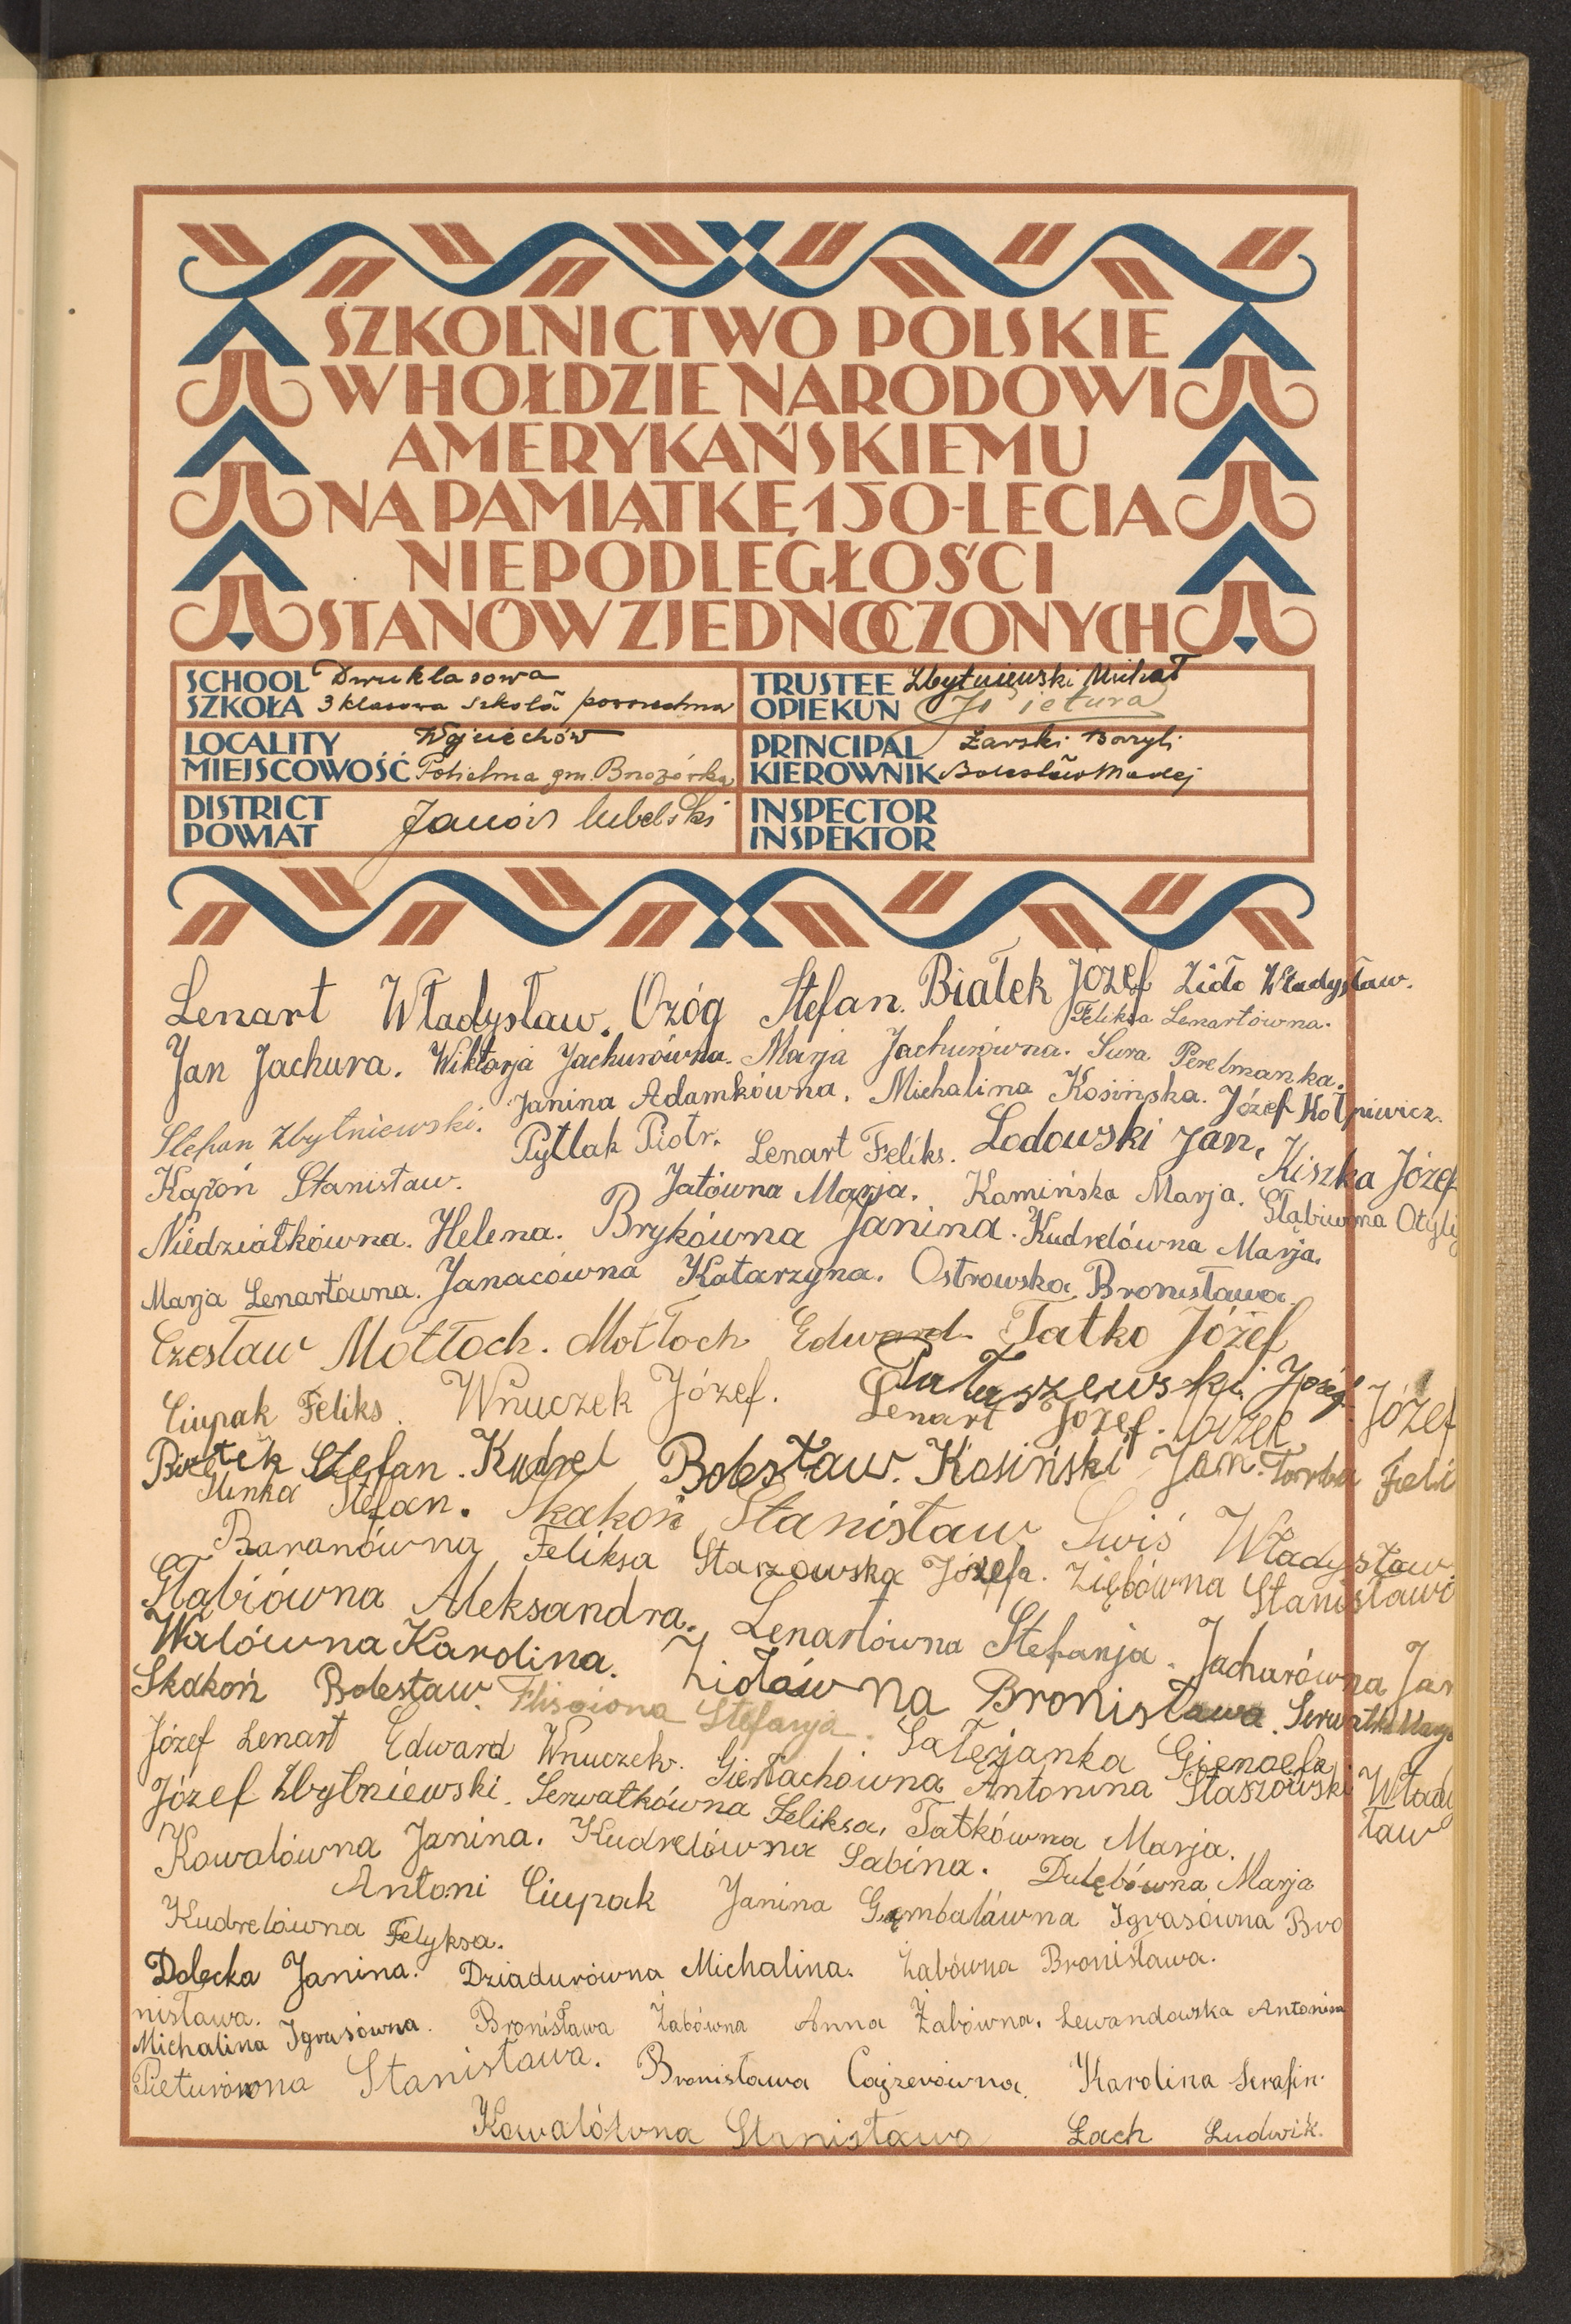 SZKOLNICTWO POLSKIE
W HOŁDZIE NARODOWI
AMERYKAŃSKIEMU
NA PAMIĄTKĘ 150-LECIA
NIEPODLEGŁOŚCI
STANÓW ZJEDNOCZONYCH
SCHOOL Dwuklasowa
SZKOŁA 3 klasowa szkoła powszechna
TRUSTEE Zbytniewski Michał
OPIEKUN J. Pietura
LOCALITY Wojciechów
MIEJSCOWOŚĆ gm. Brzozówka
PRINCIPAL Żarski Bazyli
KIEROWNIK Bolesław Madej
DISTRICT
POWIAT Janów lubelski
INSPECTOR
INSPEKTOR
Lenart Władysław. Ożóg Stefan. Białek Józef Zidło Władysław.
Feliksa Lenartówna.
Jan Jachura. Wiktorja Jachurówna. Marja Jachurówna. Sura Perelmanka.
Stefan Zbytniewski. Janina Adamkówna. Michalina Kosińska. Józef
Kapoń Stanisław. Pytlak Piotr. Lenart Feliks. Lodowski Jan. Kiszka Józef
Jatówna Marja. Kamińska Marja. Głąbiówna Otyli
Niedziałkówna. Helena. Brykówna Janina. Kudrelówna Marja.
Marja Lenartówna. Janacówna Katarzyna. Ostrowska Bronisława.
Czesław Mołłoch. Mołłoch Edward Tatko Józef
Ciupak Feliks. Wnuczek Józef. Józef
Lenart Józef. Józef
Stefan. Kudrel Bolesław. Kosiński Jan. Torba Feli
Stefan. Skakoń Stanisław Swiś Władysław.
Baranówna Feliksa Staszowska Józefa. Ziębówna Stanisława
Głąbiówna Aleksandra. Lenartówna Stefanja. Jachurówna Jan
Walówna Karolina. Zidłówna Bronisława. Serwatka Marja
Skakoń Bolesław. Stefanja. Sałęzianka Gienoefa
Józef Lenart Edward Wnuczek. Gierłachówna Antonina Staszowski Wład
Józef Zbytniewski. Serwatkówna Feliksa. Tatkówna Marja. ław
Kowalówna Janina. Kudrelówna Sabina. Dulębówna Marja
Antoni Ciupak Janina Gąmbalówna Igrasówna Bro
Kudrelówna Felyksa.
Dolecka Janina. Dziadurówna Michalina. Żabówna Bronisława.
nisława.
Michalina Igrasówna. Bronisława Żabówna Anna Żabówna. Lewandowska Antonina
Pieturówna Stanisława. Bronisława Cajzerówna. Karolina Serafin.
Kowalówna Stanisława Łach Ludwik.